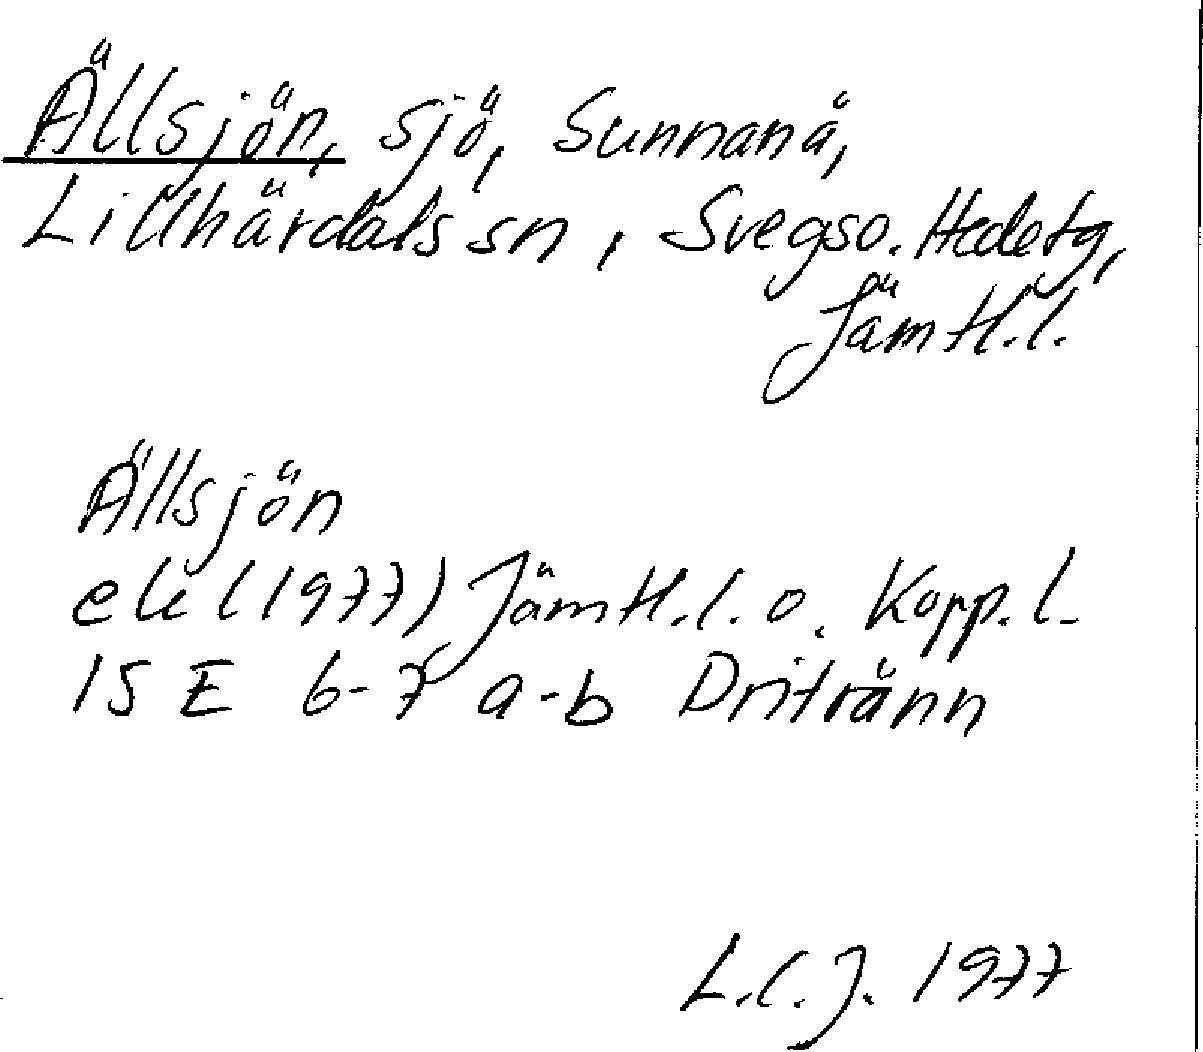 Ällsjön, sjö, Sunnanå,
Lillhärdals sn, Svegs o. Hedetg,
Jämtl.l.
Ällsjön
ek (1977) Jämtl.l. o. Kopp.l.
15 E 6-7 a-b Dritränn
L.C.J. 1977